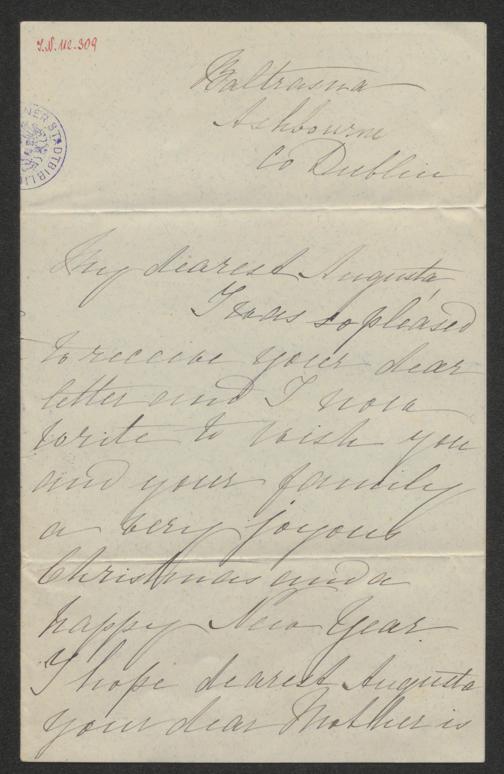 I.N. 112.309
NER STADTBIBLI
Baltrasna
Ashbourne
Co Dublin
My dearest Augusta,
I was so pleased
to receive your dear
letter and I now
write to wish you
and your family
a very joyous
Christmas and a
happy New Year.
I hope dearest Augusta
your dear Mother is